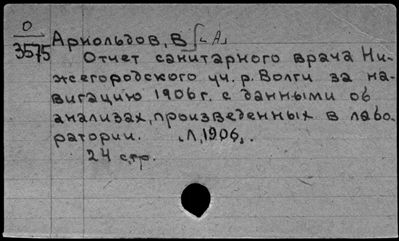 О
3575
Арнольдов, В.
Отчет санитарного врача Ни-
жегородского уч. р. Волги за на-
вигацию 1906 г. с данными об
анализах, произведенных в лабо-
ратории. Л, 1906.
24 стр.